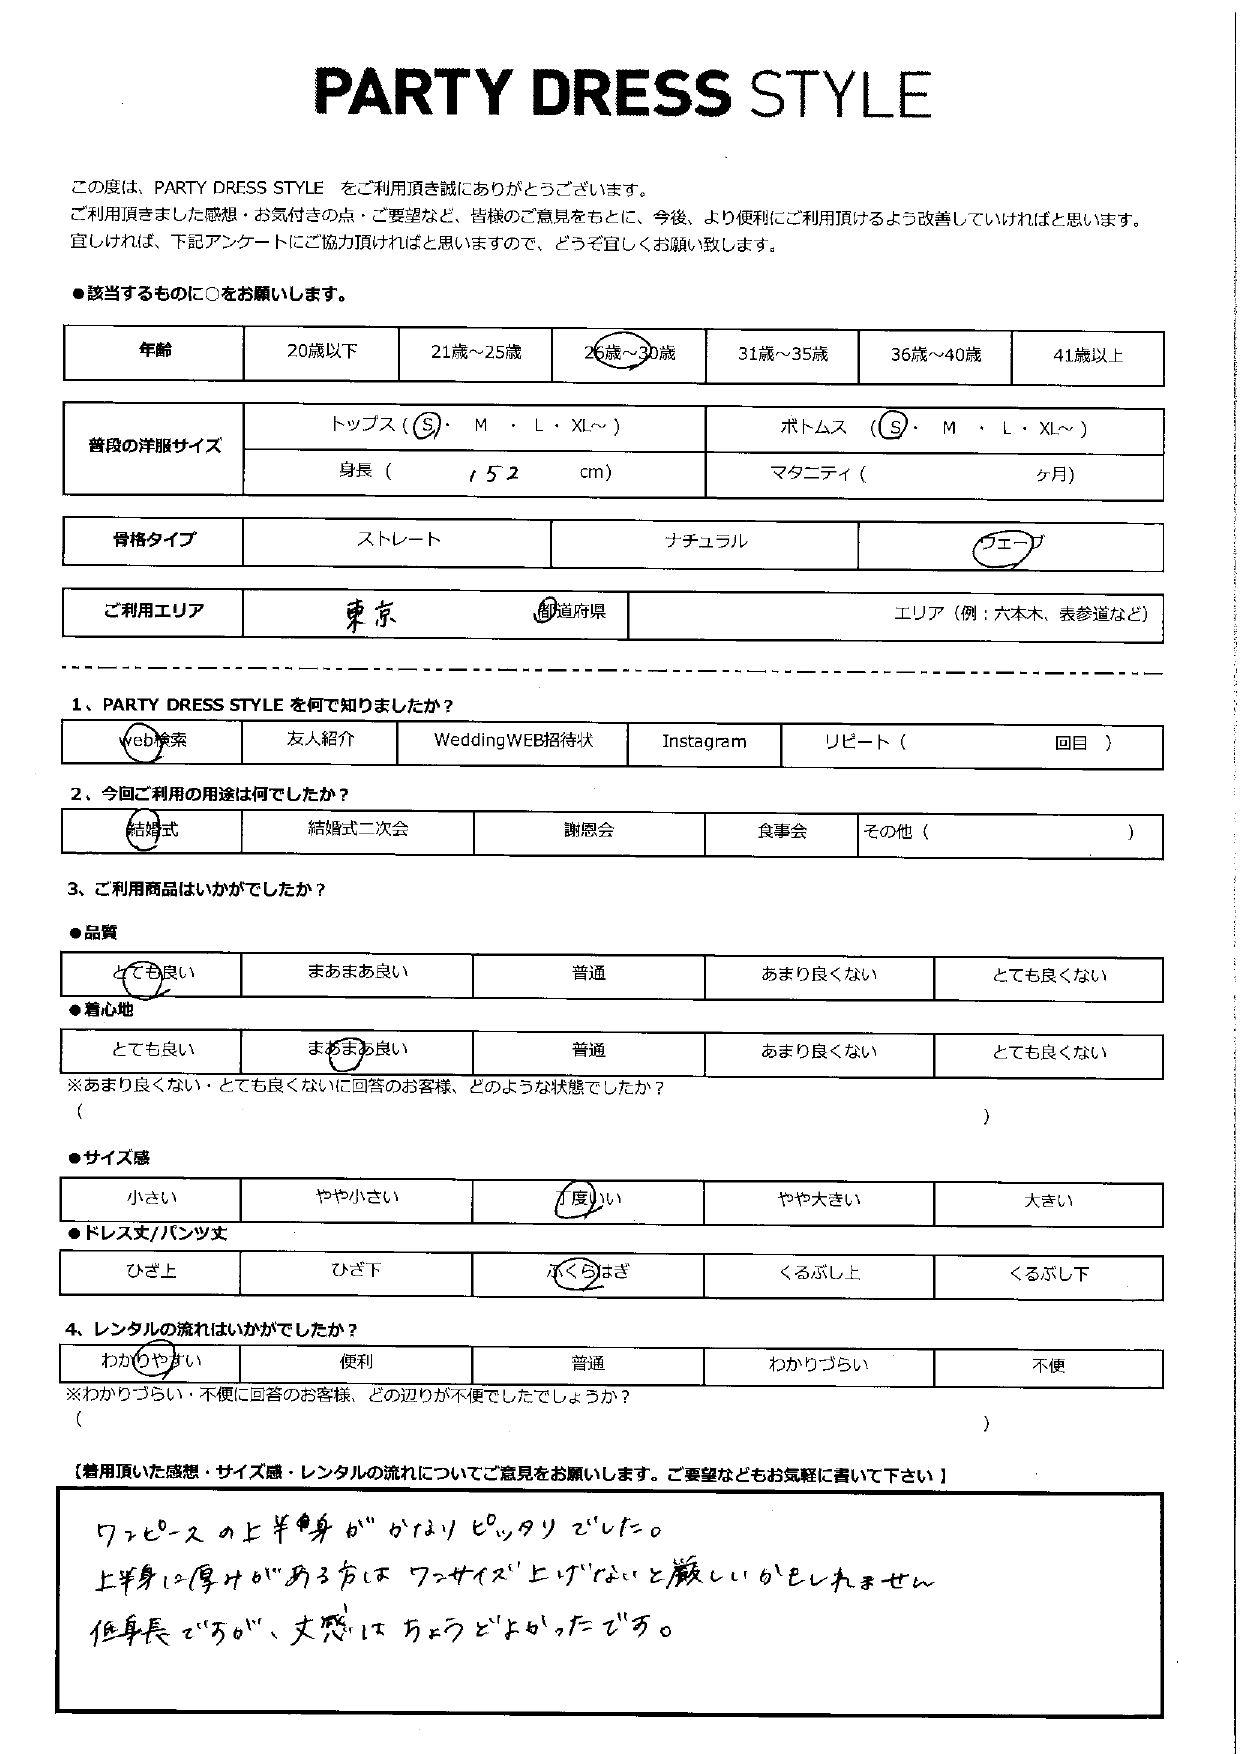 PARTY DRESS STYLE
この度は、PARTY DRESS STYLE をご利用頂き誠にありがとうございます。
ご利用頂きました感想・お気付きの点・ご要望など、皆様のご意見をもとに、今後、より便利にご利用頂けるよう改善していければと思います。
宜しければ、下記アンケートにご協力頂ければと思いますので、どうぞ宜しくお願い致します。
●該当するものに○をお願いします。
年齢 20歳以下 21歳～25歳 26歳～30歳 31歳～35歳 36歳～40歳 41歳以上
普段の洋服サイズ トップス（S・ M ・ L・ XL～ ) ボトムス （S・ M ・ L・ XL～ )
身長（ 152 cm) マタニティ（ ヶ月)
骨格タイプ ストレート ナチュラル ウェーブ
ご利用エリア 東京 都道府県 エリア（例：六本木、表参道など）
1、PARTY DRESS STYLE を何で知りましたか？
web検索 友人紹介 WeddingWEB招待状 Instagram リピート（ 回目 ）
2、今回ご利用の用途は何でしたか？
結婚式 結婚式二次会 謝恩会 食事会 その他（ ）
3、ご利用商品はいかがでしたか？
●品質
とても良い まあまあ良い 普通 あまり良くない とても良くない
●着心地
とても良い まあまあ良い 普通 あまり良くない とても良くない
※あまり良くない・とても良くないに回答のお客様、どのような状態でしたか？
（ ）
●サイズ感
小さい やや小さい 丁度いい やや大きい 大きい
●ドレス丈/パンツ丈
ひざ上 ひざ下 ふくらはぎ くるぶし上 くるぶし下
4、レンタルの流れはいかがでしたか？
わかりやすい 便利 普通 わかりづらい 不便
※わかりづらい・不便に回答のお客様、どの辺りが不便でしたでしょうか？
（ ）
【着用頂いた感想・サイズ感・レンタルの流れについてご意見をお願いします。ご要望などもお気軽に書いて下さい 】
ワンピースの上半身がかなりピッタリでした。
上半身に厚みがある方はワンサイズ上げないと厳しいかもしれません
低身長ですが、丈感はちょうどよかったです。